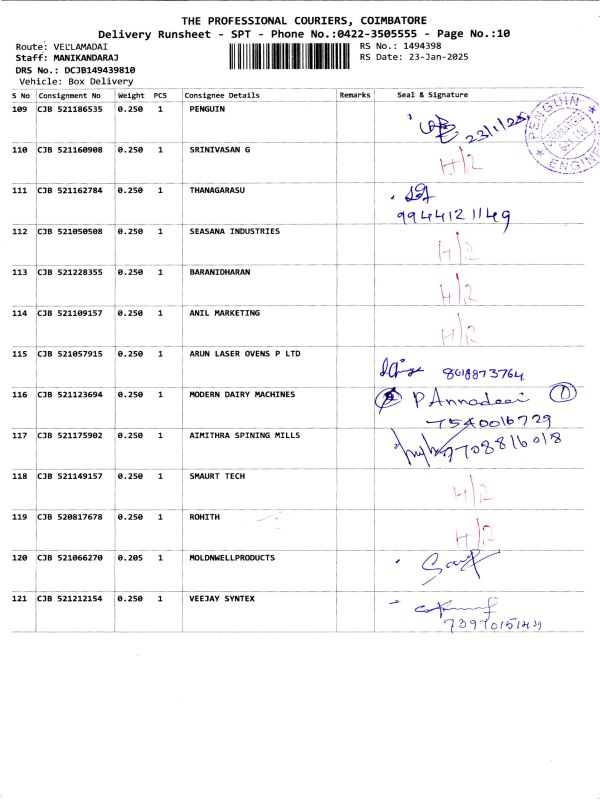 THE PROFESSIONAL COURIERS, COIMBATORE
Delivery Runsheet - SPT - Phone No.:0422-3505555 - Page No.:10
Route: VELLAMADAI RS No.: 1494398
Staff: MANIKANDARAJ RS Date: 23-Jan-2025
DRS No.: DCJB149439810
Vehicle: Box Delivery
S No Consignment No Weight PCS Consignee Details Remarks Seal & Signature
109 CJB 521186535 0.250 1 PENGUIN 23/1/25 PENGUIN ENGINE
110 CJB 521160908 0.250 1 SRINIVASAN G H/R
111 CJB 521162784 0.250 1 THANAGARASU
9944121149
112 CJB 521050508 0.250 1 SEASANA INDUSTRIES H/R
113 CJB 521228355 0.250 1 BARANIDHARAN H/R
114 CJB 521109157 0.250 1 ANIL MARKETING H/R
115 CJB 521057915 0.250 1 ARUN LASER OVENS P LTD
8018873764
116 CJB 521123694 0.250 1 MODERN DAIRY MACHINES P Annadeai 1
7540016729
117 CJB 521175902 0.250 1 AIMITHRA SPINING MILLS 7708816018
118 CJB 521149157 0.250 1 SMAURT TECH H/R
119 CJB 520817678 0.250 1 ROHITH H/R
120 CJB 521066270 0.205 1 MOLDNWELLPRODUCTS
121 CJB 521212154 0.250 1 VEEJAY SYNTEX